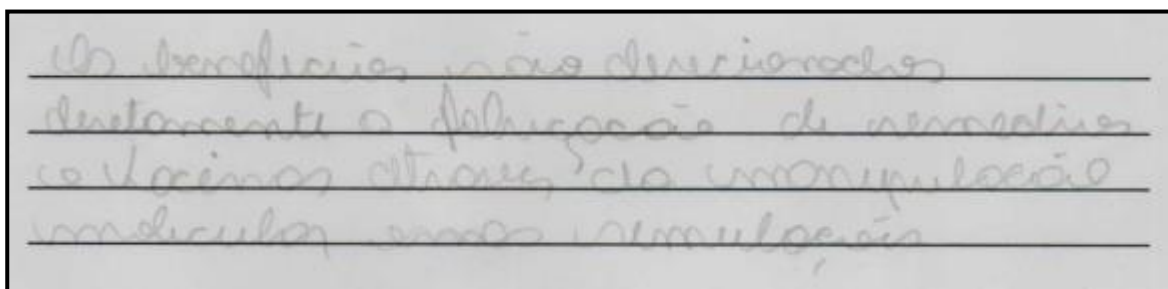 Os beneficios são direcionados
diretamente a fabricação de remedios
e vacinas atraves da manipulação
molecular simulação